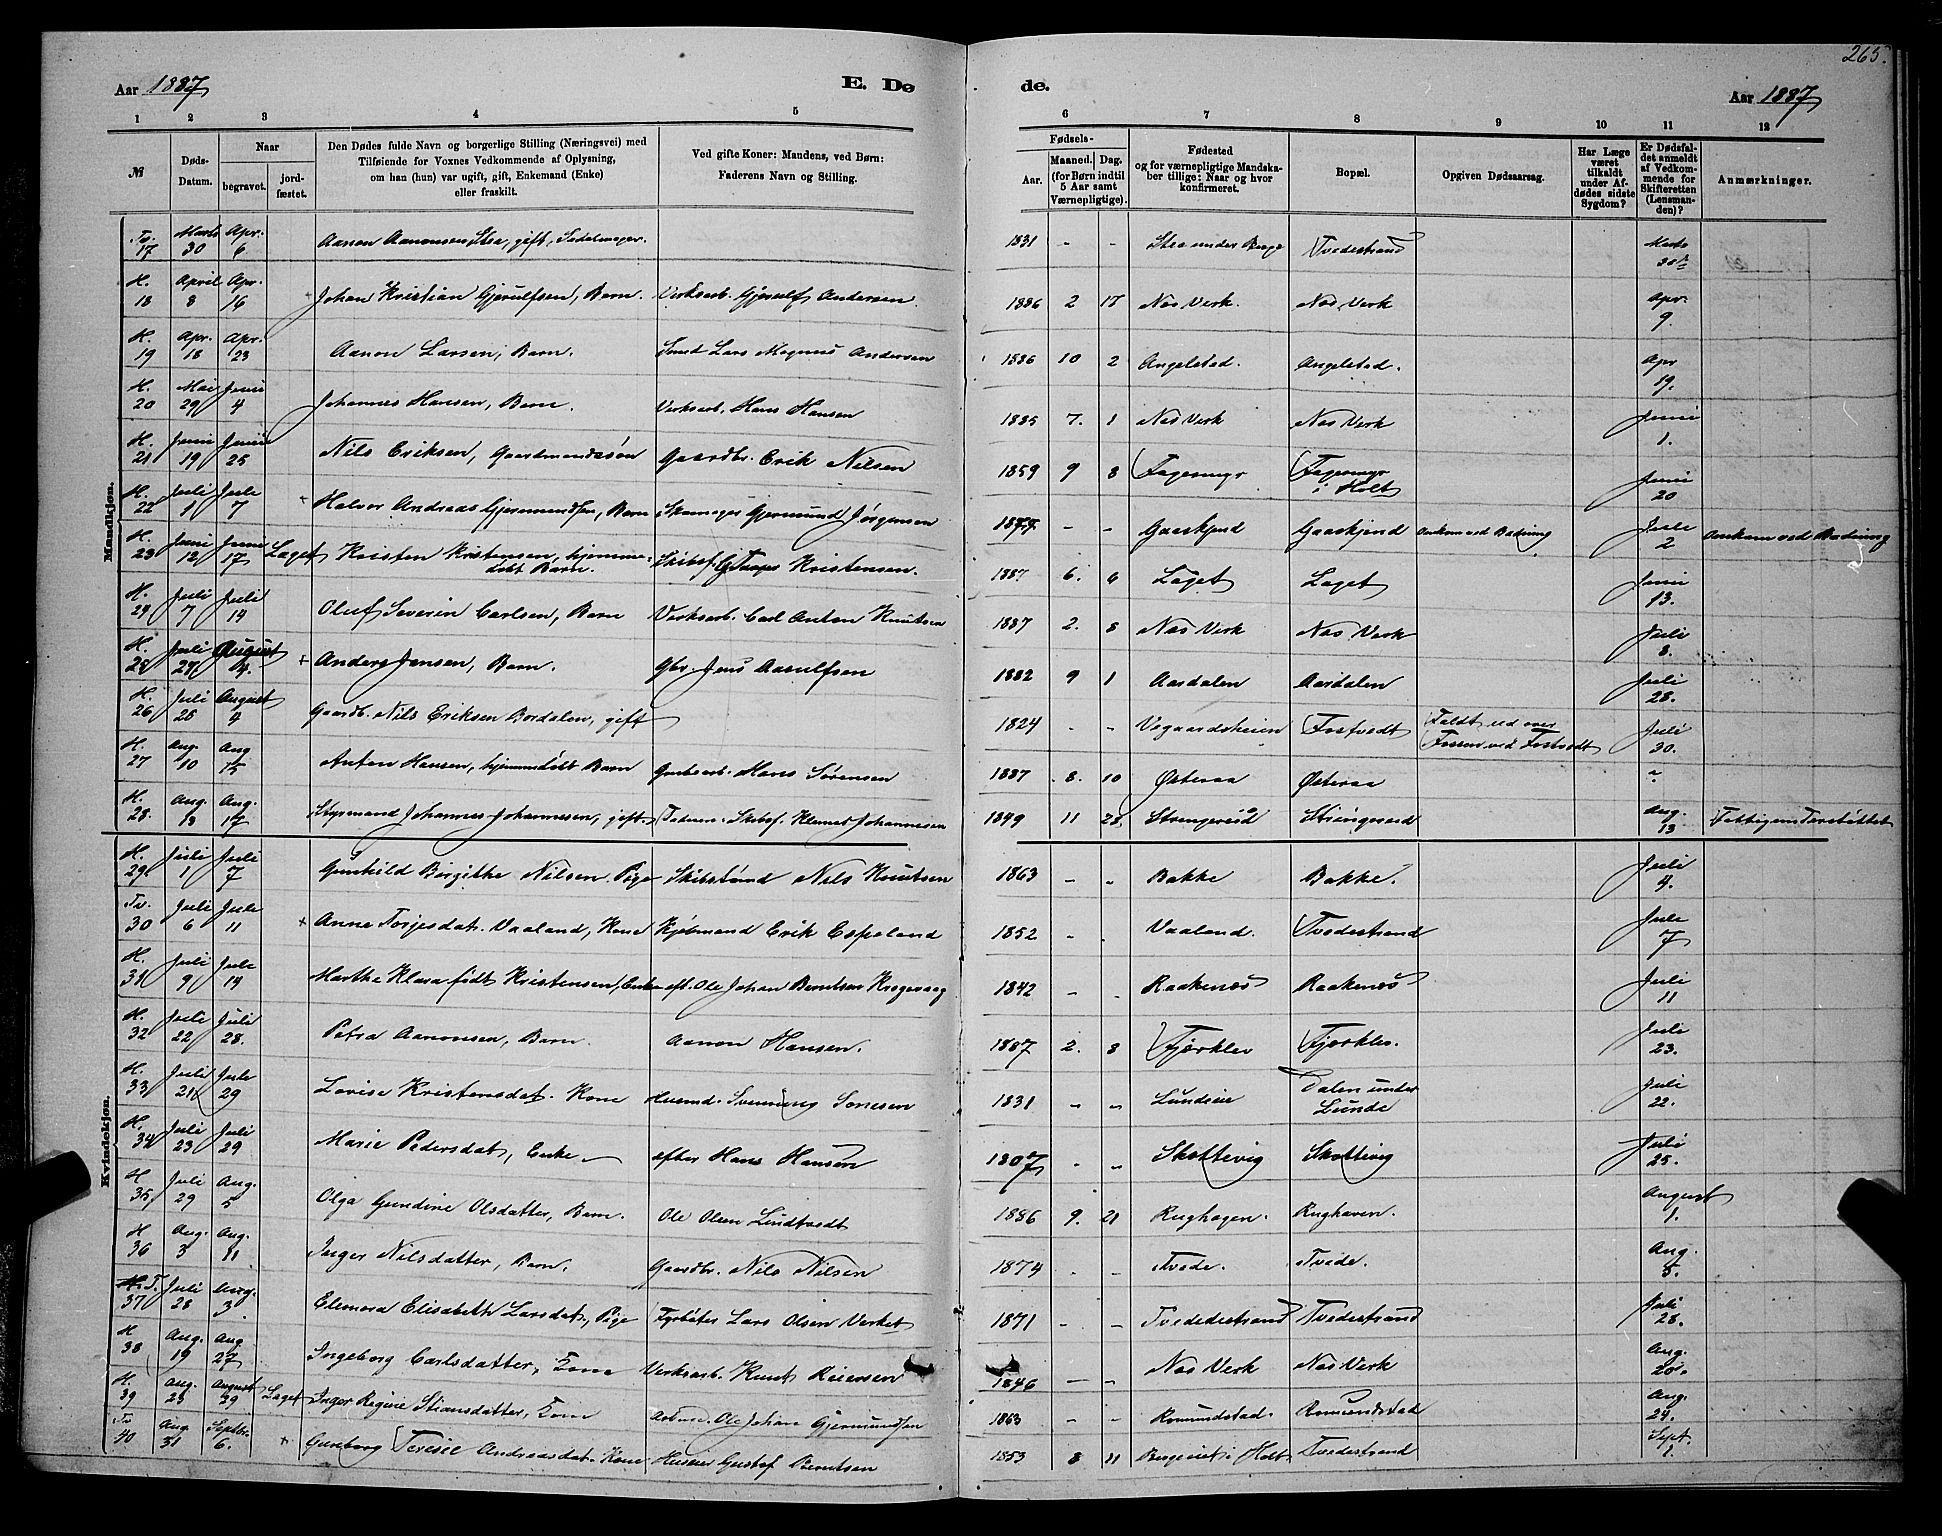 265.
Aar 1887
E. Dø
de.
Aar 1887
1 2 3 4 5 6 7 8 9 10 11 12
№
Døds-Datum.
Naar
begravet.
jord-fæstet.
Den Dødes fulde Navn og borgerlige Stilling (Næringsvei) med
Tilføiende for Voxnes Vedkommende af Oplysning,
om han (hun) var ugift, gift, Enkemand (Enke)
eller fraskilt.
Ved gifte Koner: Mandens, ved Børn:
Faderens Navn og Stilling.
Fødsels-
Aar. Maaned. Dag.
(for Børn indtil
5 Aar samt
Værnepligtige).
Fødested
og for værnepligtige Mandska-
ber tillige: Naar og hvor
konfirmeret.
Bopæl.
Opgiven Dødsaarsag.
Har Læge
været
tilkaldt
under Af-
dødes sidste
Sygdom?
Er Dødsfal-
det anmeldt
af Vedkom-
mende for
Skifteretten
(Lensman-
den)?
Anmærkninger.
Mandkjøn.
Tv. 17 Marts 30 Apr. 6 Aanon Aanonsen Stea, gift, Sadelmager. 1831 - - Stea under Berge Tvedestrand Marts 30te
H. 18 April 8 Apr. 16 Johan Kristian Gjerulfsen, Barn. Verksarb. Gjerulf Andersen. 1886 2 17 Næs Verk. Næs Verk Apr. 9.
H. 19 Apr. 18 Apr. 23 Aanon Larsen, Barn. Smed Lars Magnus Andersen 1886 10 2 Angelstad. Angelstad. Apr 19.
H. 20 Mai 29 Juni 4 Johannes Hansen, Barn. Verksarb. Hans Hansen 1885 7. 1 Næs Verk Næs Verk Juni 1.
H. 21 Juni 19 Juni 25 Nils Eriksen, Gaardmandssøn Gaardbr. Erik Nilsen 1859 9 8 Fagermyr Fagermyr i Holt Juni 20
H. 22 Juli 1 Juli 7 + Halvor Andreas Gjermundsen, Barn Skomager Gjermund Jørgensen 1877 - - Gaaskjend Gaaskjend Omkom ved Badning Juli 2 Omkom ved Badning
H. 23 Juni 12 Juni 17 Laget Kristen Kristensen, hjemmedøbt Barn. Skibsf. Kristensen. 1887 6. 6 Laget Laget Juni 13.
H. 24 Juli 7 Juli 14 Oluf Severin Carlsen, Barn Verksarb. Carl Anton Knutsen 1887 2. 8 Næs Verk Næs Verk Juli 8.
H. 25 Juli 27 August 4. + Anders Jensen, Barn. Gbr. Jens Aasulfsen 1882 9 1 Aasdalen Aasdalen Juli 28.
H. 26 Juli 28 August 4 Gaardb. Nils Eriksen Bordalen, gift 1824 - - Vegaardsheien Fostvedt Faldt ud over Fossen ved Fostvedt Juli 30.
H. 27 Aug. 10 Aug 15 Anton Hansen, hjemmedøbt Barn Grubearb. Hans Sørensen 1887 8. 10 Østeraa Østeraa
H. 28. Aug. 13 Aug. 17 Styrmand Johannes Johannesen, gift. Faderen: Skibsf. Klemet Johannesen 1849 11 28 Strengereid Strengereid Aug. 13 Fattigunderstøttet
Kvindekjøn.
H. 29 Juli 1 Juli 7 Gunhild Birgithe Nilsen Pige Skibstømd Nils Knutsen 1863 - - Bakke Bakke. Juli 4.
Tv. 30 Juli 6 Juli 11 + Anne Torjesdat. Vaaland, Kone Kjøbmand Erik Espeland 1852 - Vaaland. Tvedestrand Juli 7
H. 31 Juli 9 Juli 14 Marthe Klara født Kristensen, Enke eft. Ole Johan Berntsen Krogevaag 1842 - - Raakenæs Raakenæs Juli 11
H. 32 Juli 22 Juli 28. Petra Aanonsen, Barn. Aanon Hansen. 1887 2. 8 Fjærklev Fjærklev. Juli 23.
H. 33 Juli 21 Juli 29 Lovise Kristensdat. Kone Husmd. Svenning Sonesen 1831 - - Lundeie Dalen under Lunde Juli 22.
H. 34 Juli 23 Juli 29 Marie Pedersdat, Enke - efter Hans Hansen 1807 - - Skottevig Skottevig Juli 25.
H 35. Juli 29 Aug. 5 Olga Gundine Olsdatter, Barn. Ole Olsen Lindtvedt 1886 9. 21 Rughagen. Rughaven. August 1.
H 36 Aug. 3 Aug. 11 Inger Nilsdatter, Barn. Gaardbr. Nils Nilsen 1874 - - Tvede. Tvede. Aug. 5.
T. 37 Juli 28 Aug. 3 Elenora Elisabeth Larsdat., Pige Fyrbøter Lars Olsen Verket 1871 - - Tvedestrand Tvedestrand Juli 28.
H 38 Aug. 19 Aug 27 Ingeborg Carlsdatter, Kone Verksarb. Knut Reiersen 1846 - - Næs Verk Næs Verk Aug. 20.
H. 39 Aug. 23 August 29 Laget Inger Regine Stiansdatter, Kone Ole Johan Gjermundsen 1863 - - Romundstad. Romundstad Aug. 24.
Tv 40 Aug. 31 Septbr. 6. + Gunborg Teresie Andreasdat. Kone Husier Gustaf Berntsen 1853 8 11 Bergeviet i Holt Tvedestrand Sept. 1.